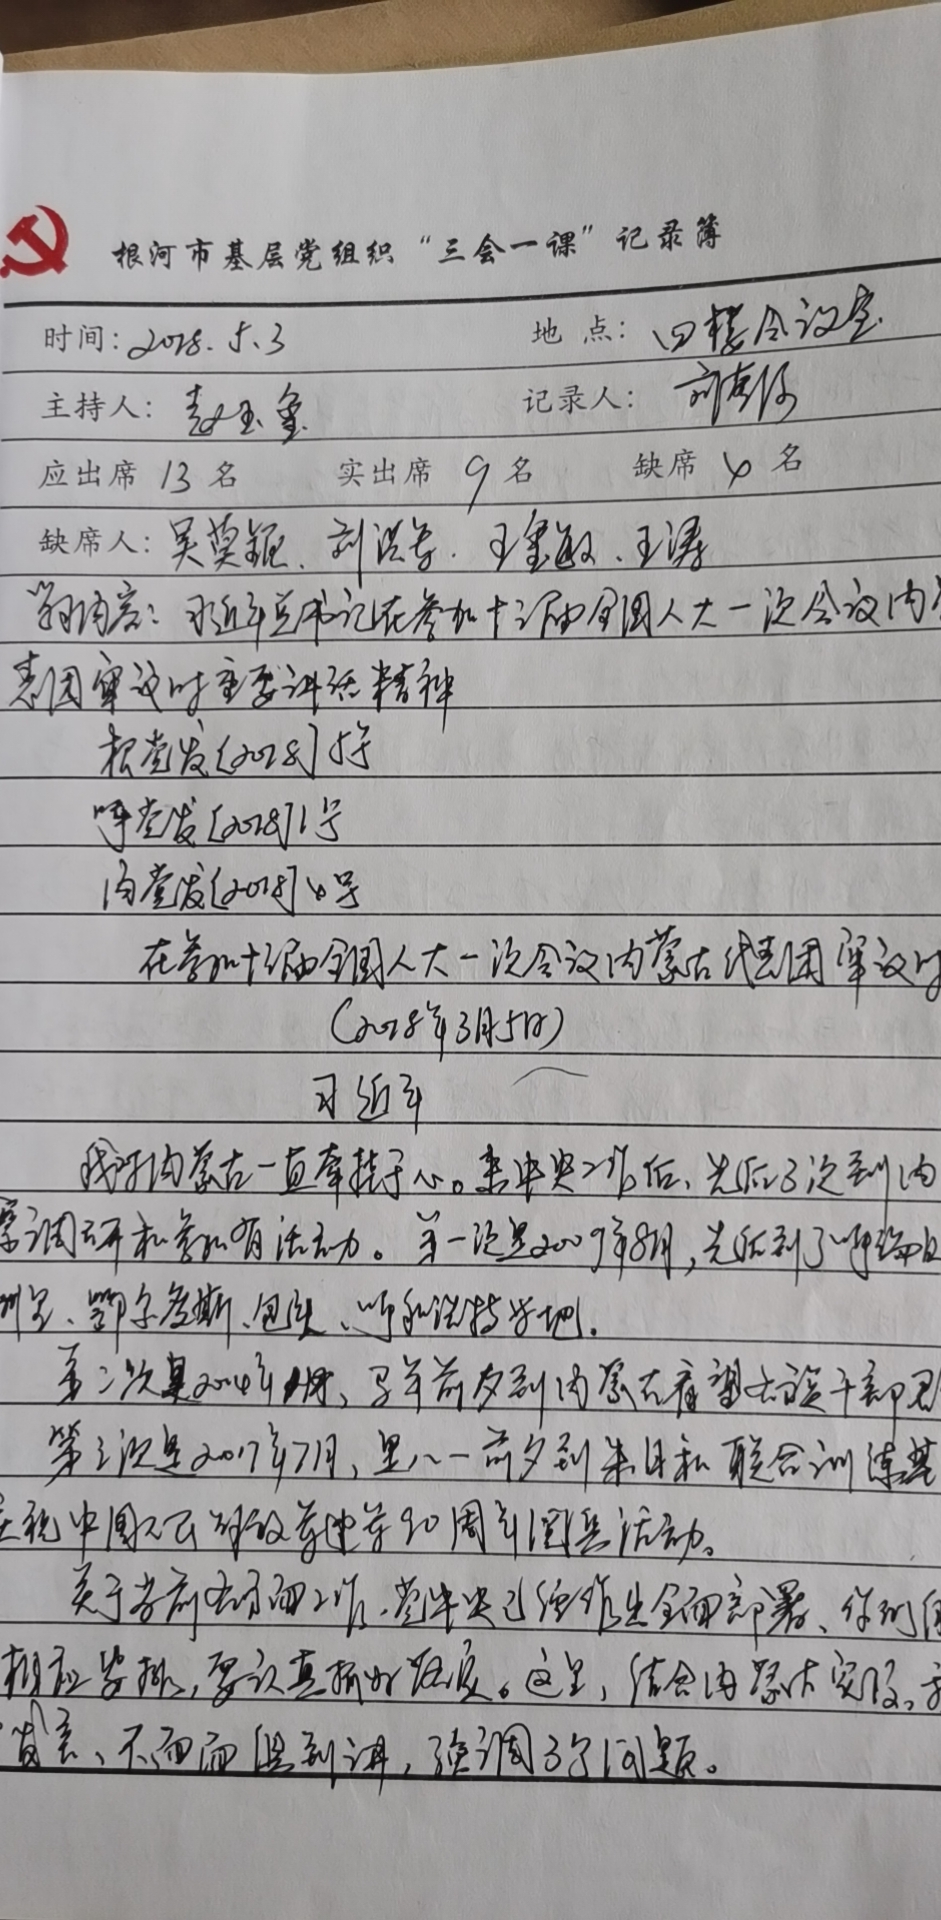 根河市基层党组织“三会一课”记录簿
时间：2018.5.3 地点：四楼会议室
主持人：赵玉玺 记录人：
应出席 13 名 实出席 9 名 缺席 4 名
缺席人：吴 、刘洪 、王 敏、王涛
学习内容：习近平总书记在参加十三届全国人大一次会议内
表团审议时重要讲话精神
根党发[2018]5号
呼党发[2018]1号
内党发[2018]4号
在参加十三届全国人大一次会议内蒙古代表团审议时
（2018年3月5日）
习近平
我对内蒙古一直牵挂于心。来中央工作后、先后3次到内
蒙调研和参加有活动。第一次是2009年8月，先后到了呼
、鄂尔多斯、包头、呼和浩特等地。
第二次是2014年1月、马年前夕到内蒙古看望各族干部
第三次是2017年7月，是八一前夕到朱日和联合训练基
庆祝中国人民解放军建军90周年阅兵活动。
关于当前各方面工作、党中央已经作出全面部署、你们
相应安排，要认真抓好落实。这里，结合内蒙古实际、
发言、不面面俱到讲，强调3个问题。